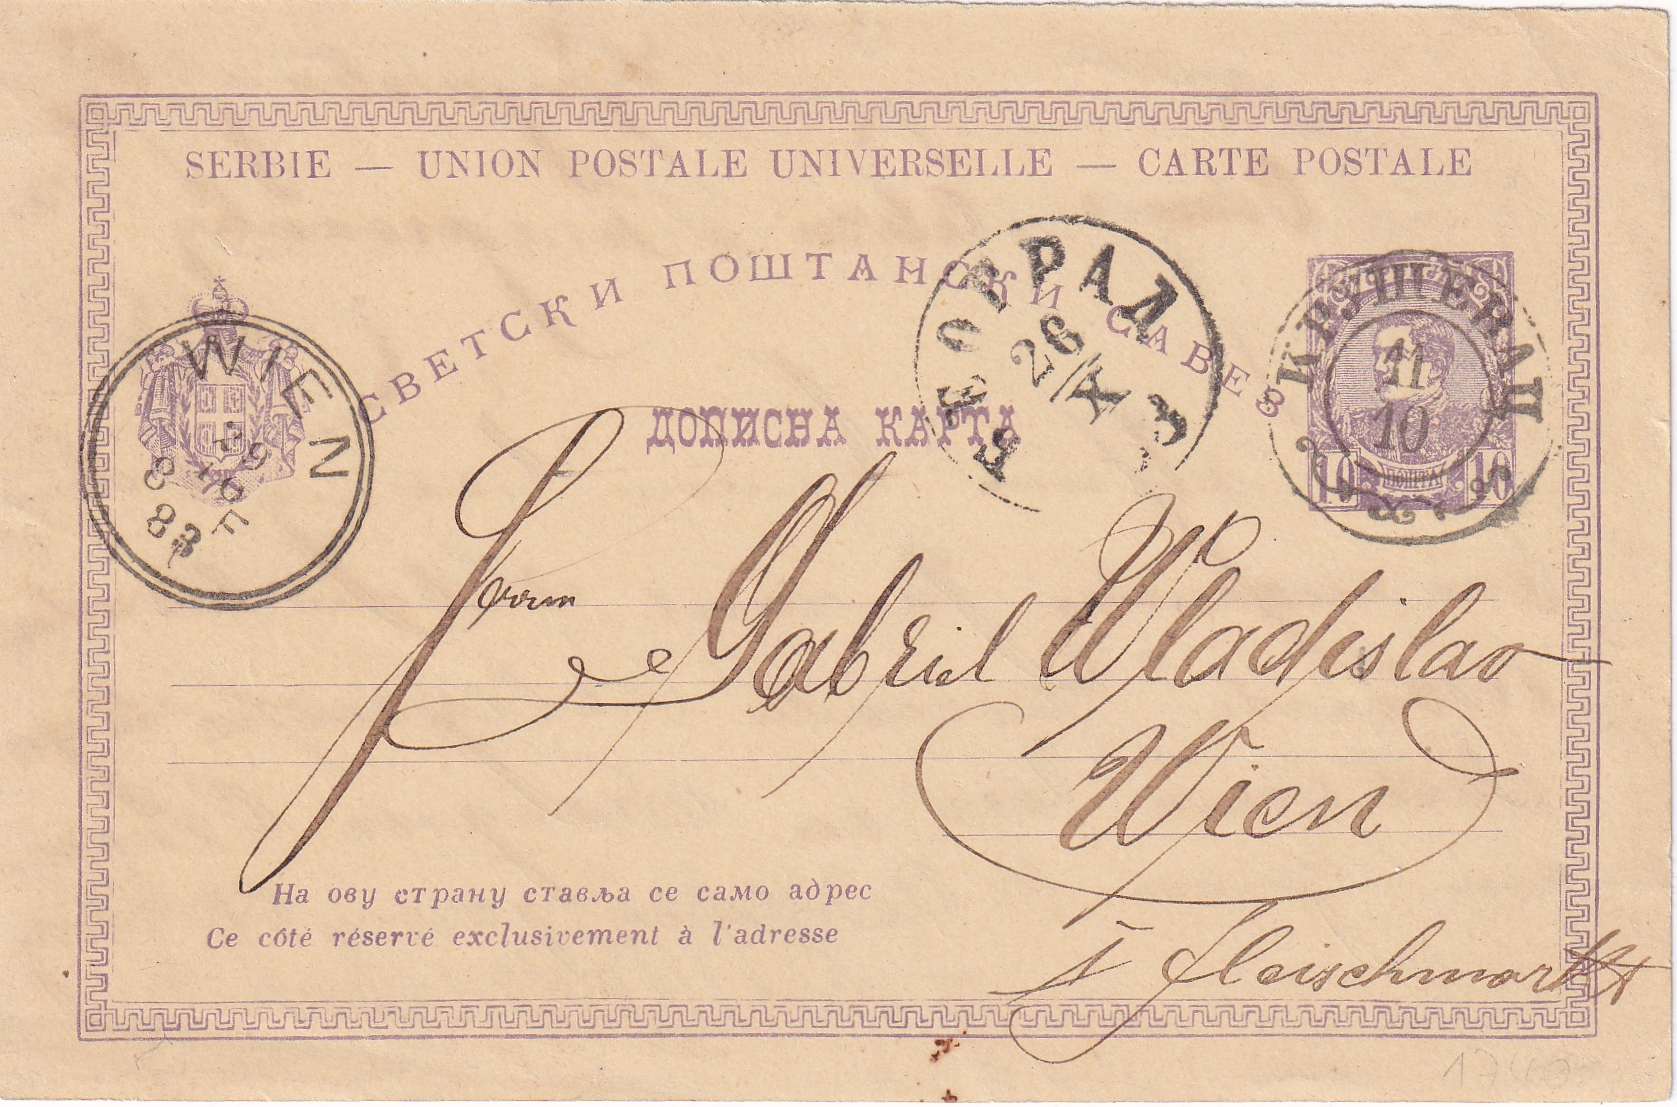 SERBIE — UNION POSTALE UNIVERSELLE — CARTE POSTALE
СВЕТСКИ ПОШТАНСКИ САВЕЗ
ДОПИСНА КАРТА
БЕОГРАД
26/X
КРУШЕВАЦ
11
10
10 10
WIEN
83
Herrn Gabriel Wladislav
Wien
Fleischmarkt
На ову страну ставља се само адрес
Ce côté réservé exclusivement à l'adresse